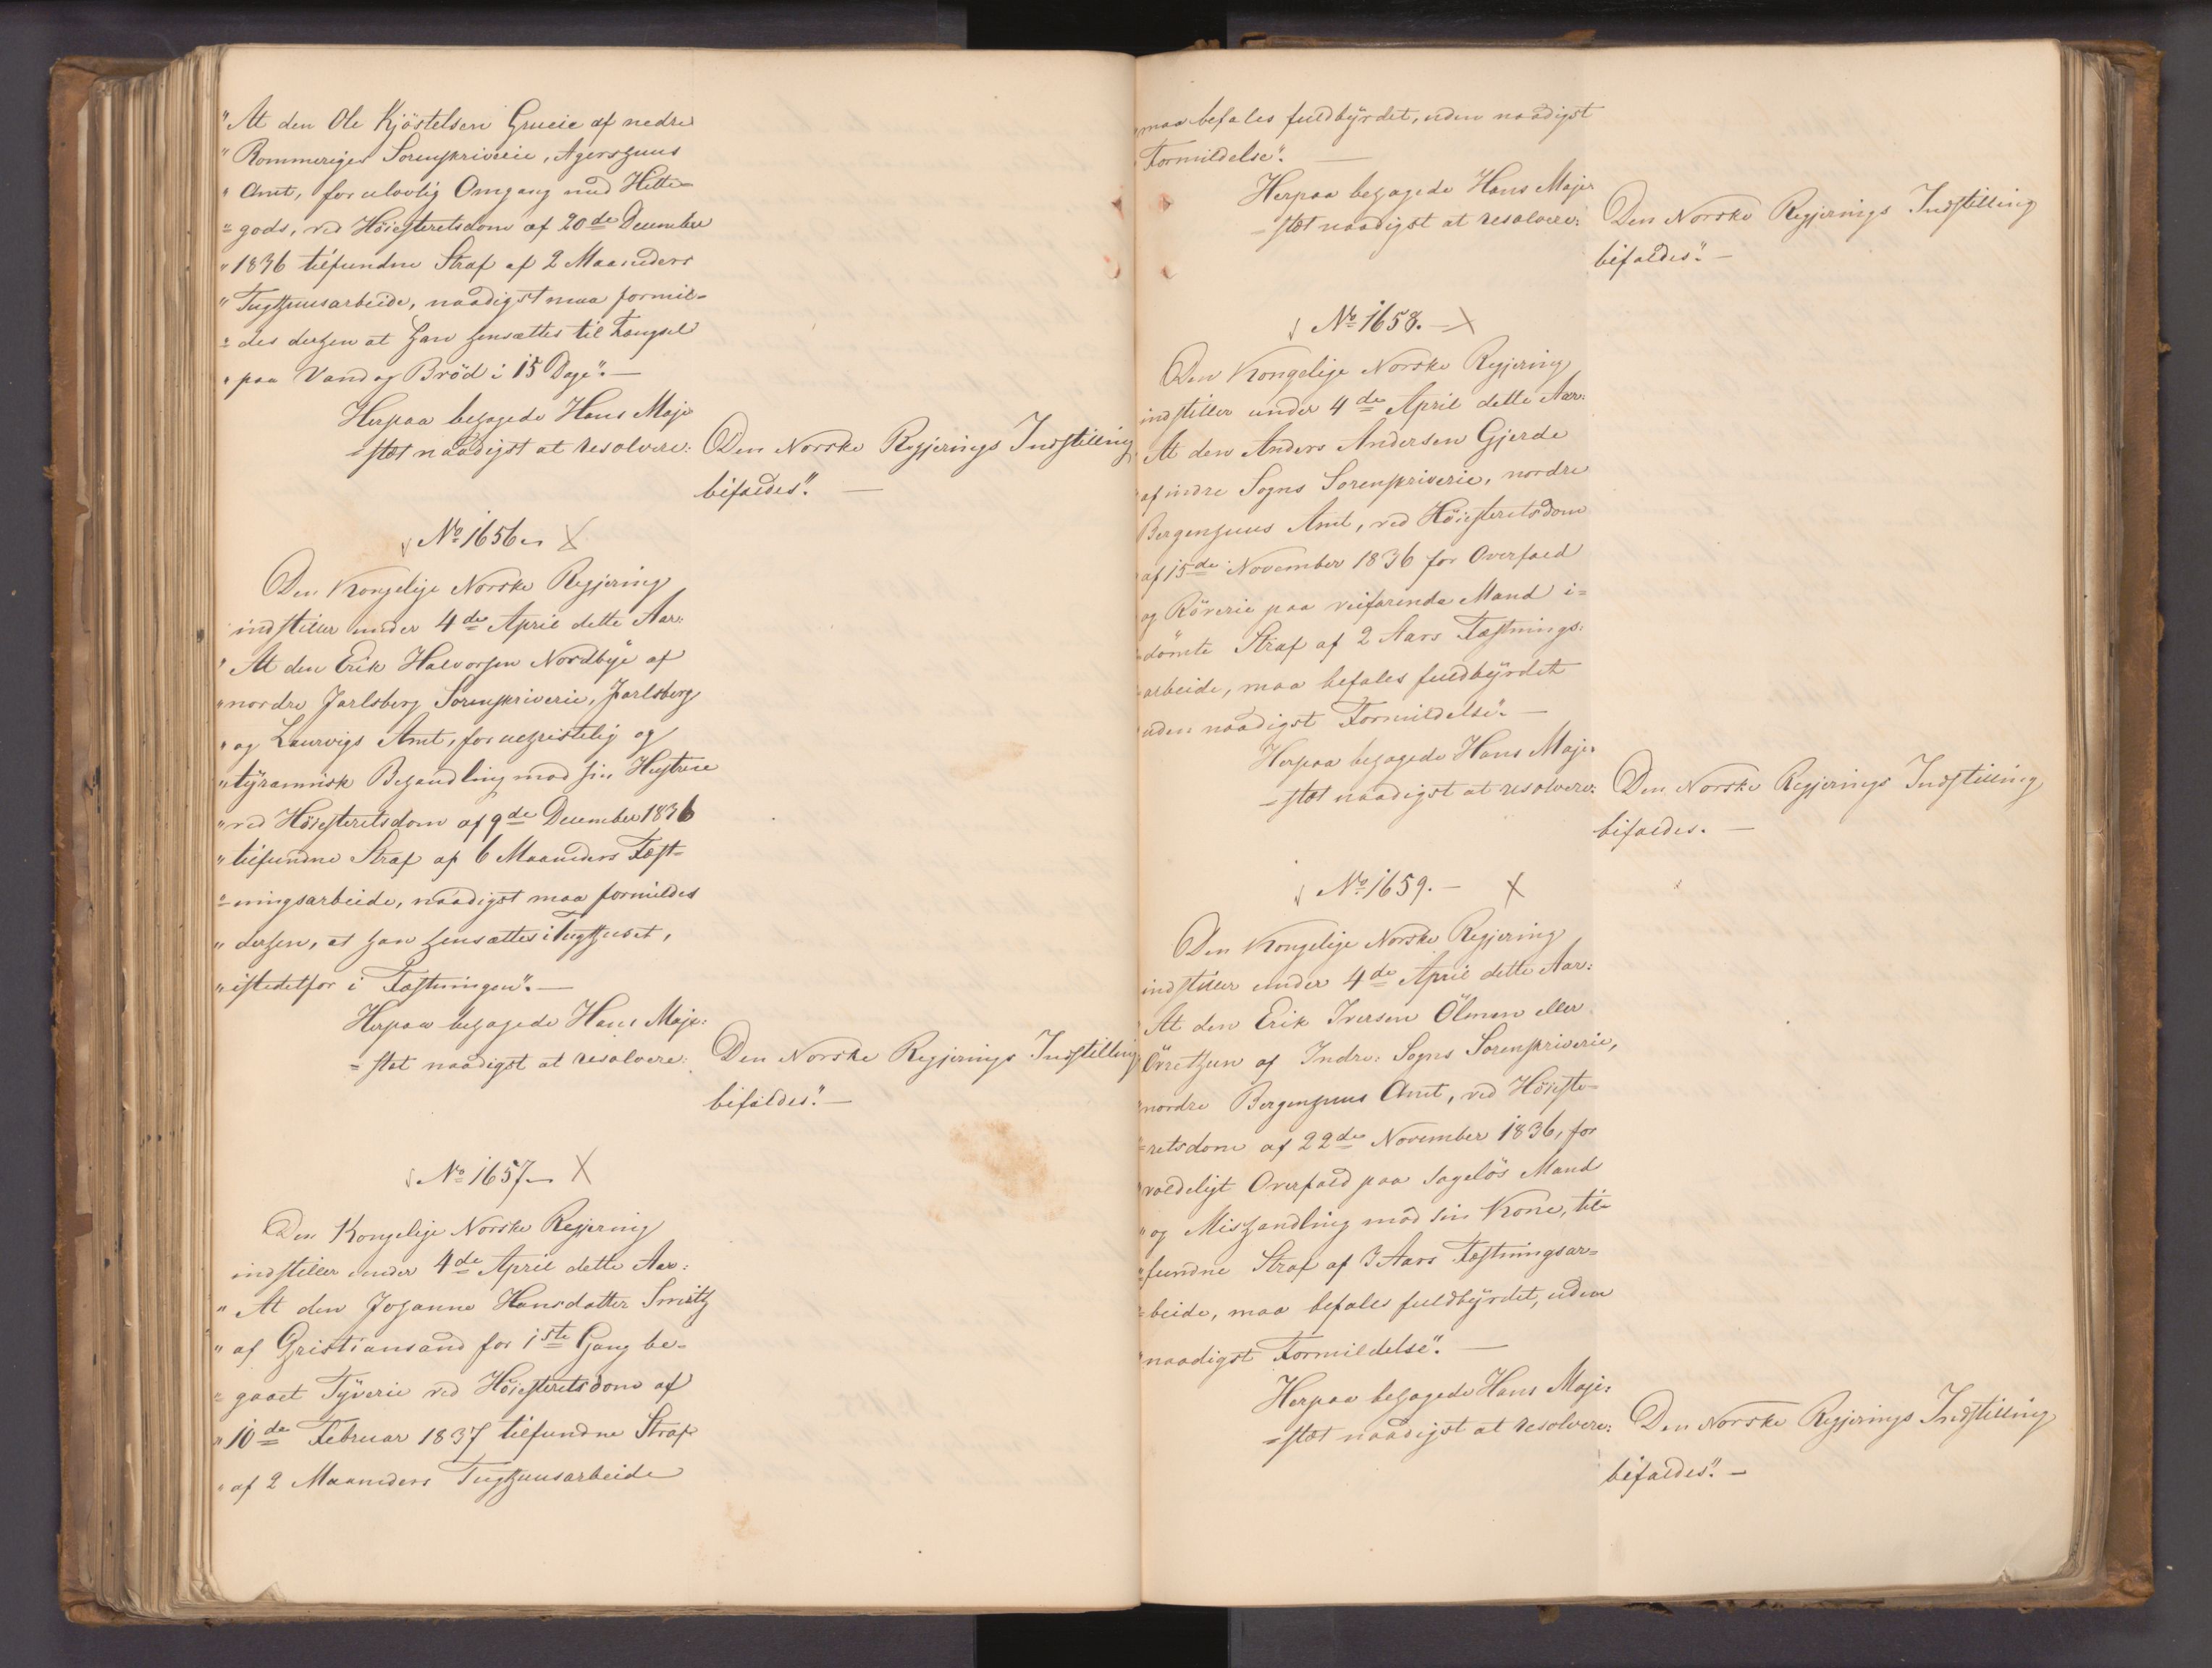 "At den Ole Kjöstelsen Grueie af nedre
"Rommeriges Sorenskriverie, Agershuus
"Amt, for ulovlig Omgang med Hitte=
"gods, ved Höiesteretsdom af 20de December
"1836 tilfundne Straf af 2 Maaneders
"Tugthuusarbeide, naadigst maa formil=
"des derhen at han hensættes til Fængsel
"paa Vand og Bröd i 15 Dage". —
Herpaa behagede Hans Maje=
=stæt naadigst at resolvere: Den Norske Regjerings Indstilling
bifaldes". —
No 1656. X
Den Kongelige Norske Regjering
indstiller under 4de April dette Aar:
"At den Erik Halvorsen Nordbÿe af
"nordre Jarlsberg Sorenskriverie, Jarlsberg
"og Laurvigs Amt, for uchristelig og
"tÿrannisk Behandling mod sin Hustrue
"ved Höiesteretsdom af 9de December 1836
"tilfundne Straf af 6 Maaneders Fæst=
"=ningsarbeide, naadigst maa formildes
"derhen, at han hensættes i Tugthuset,
"istedetfor i Fæstningen". —
Herpaa behagede Hans Maje=
=stæt naadigst at resolvere: Den Norske Regjerings Indstilling
bifaldes". —
No 1657. X
Den Kongelige Norske Regjering
indstiller under 4de April dette Aar:
"At den Johanne Hansdatter Smith
"af Christiansand for 1ste Gang be=
"gaaet Tÿverie ved Höiesteretsdom af
"10de Februar 1837 tilfundne Straf
"af 2 Maaneders Tugthuusarbeide
"maa befales fuldbÿrdet, uden naadigst
"Formildelse". —
Herpaa behagede Hans Maje=
=stæt naadigst at resolvere: Den Norske Regjerings Indstilling
bifaldes". —
No 1658. — X
Den Kongelige Norske Regjering
indstiller under 4de April dette Aar:
At den Anders Andersen Gjerde
"af indre Sogns Sorenskriverie, nordre
Bergenhuus Amt, ved Höiesteretsdom
"af 15de November 1836 for Overfald
og Röverie paa veifarende Mand i=
=dömte Straf af 2 Aars Fæstnings=
"arbeide, maa befales fuldbÿrdet
"uden naadigst Formildelse". —
Herpaa behagede Hans Maje=
=stæt naadigst at resolvere: Den Norske Regjerings Indstilling
bifaldes. —
No 1659. — X
Den Kongelige Norske Regjering
indstiller under 4de April dette Aar:
At den Erik Iversen Ölmen eller
af Indre: Sogns Sorenskriverie,
"nordre Bergenhuus Amt, ved Höieste=
"retsdom af 22de November 1836, for
"voldeligt Overfald paa sagelös Mand
"og Mishandling mod sin Kone, til=
"fundne Straf af 3 Aars Fæstningsar=
"beide, maa befales fuldbÿrdet, uden
"naadigst Formildelse". —
Herpaa behagede Hans Maje=
=stæt naadigst at resolvere: Den Norske Regjerings Indstilling
bifaldes". —